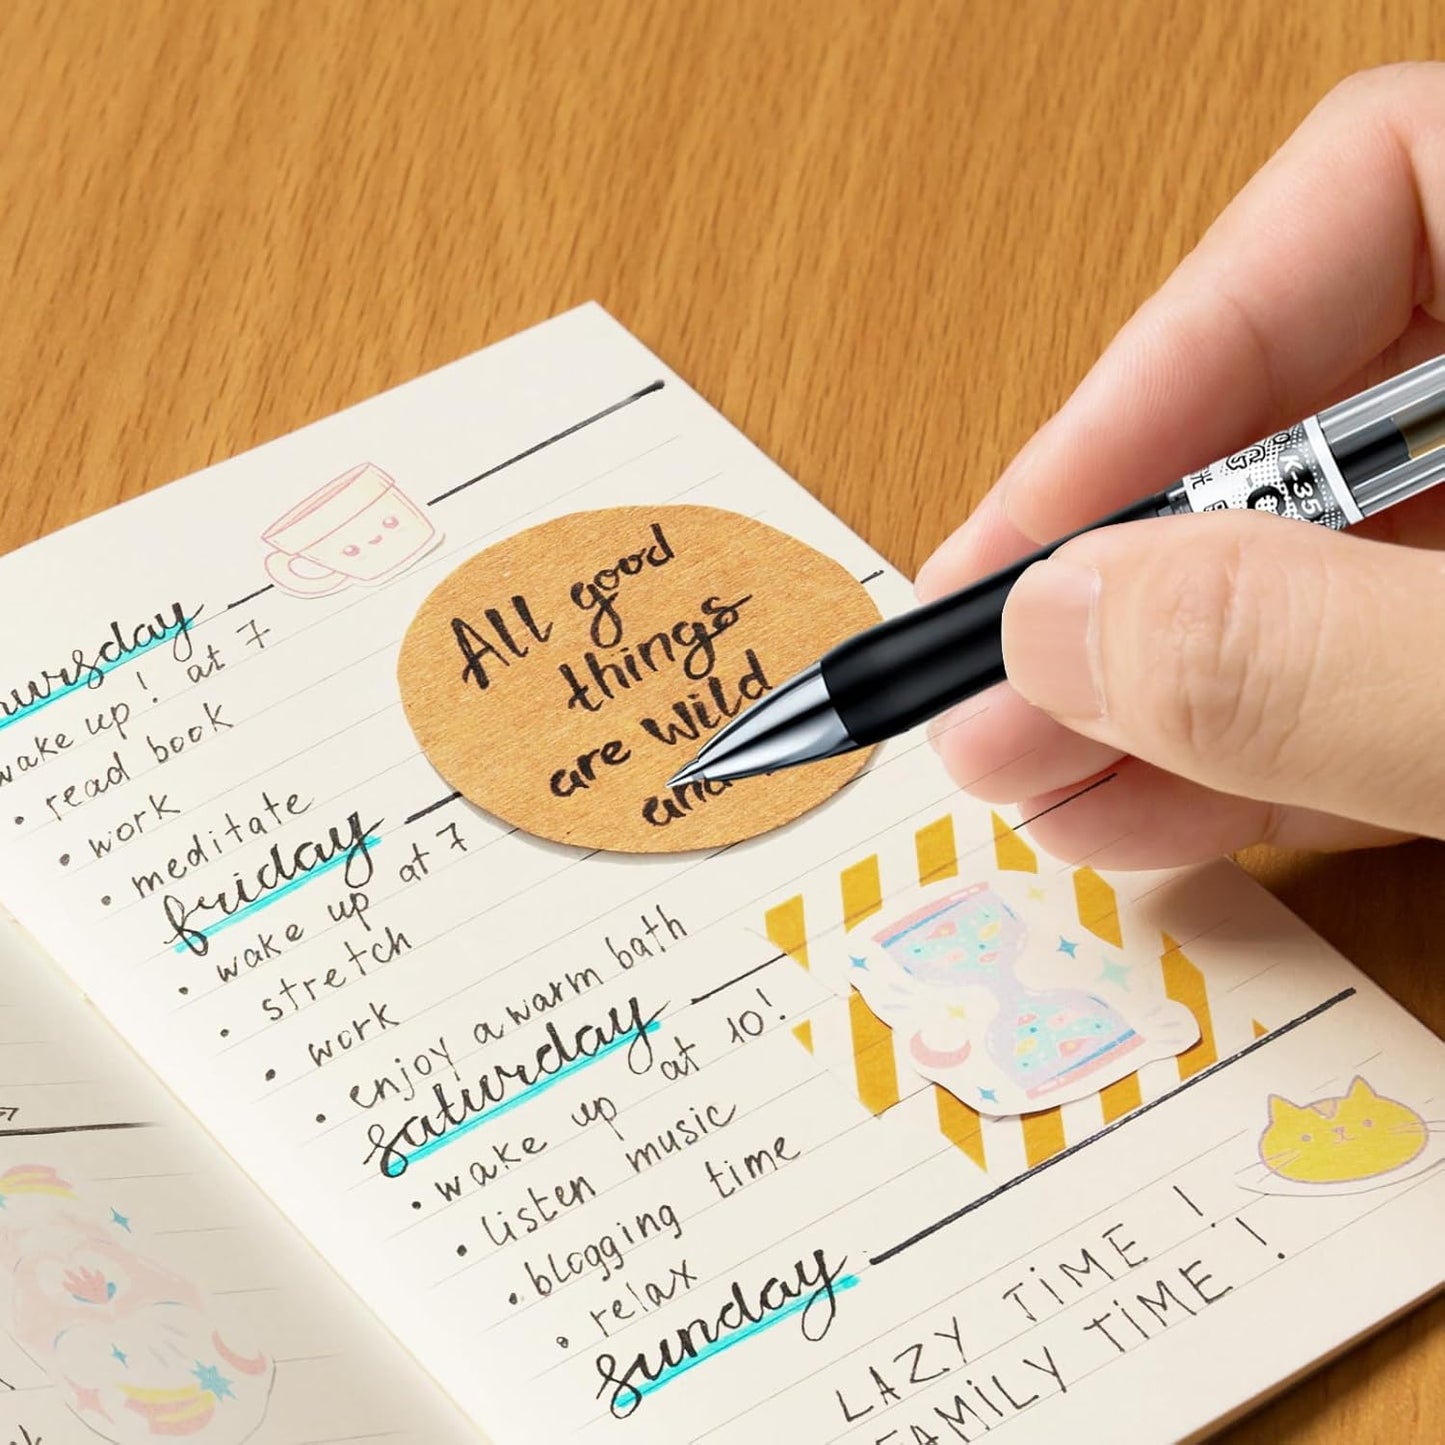 All good
things
are wild
and
wake up! at 7
• read book
• work
• meditate
friday
• wake up at 7
• stretch
• work
• enjoy a warm bath
saturday
• wake up at 10!
• listen music
• blogging time
• relax
sunday
LAZY TiME !
FAMiLY TiME !
K-35